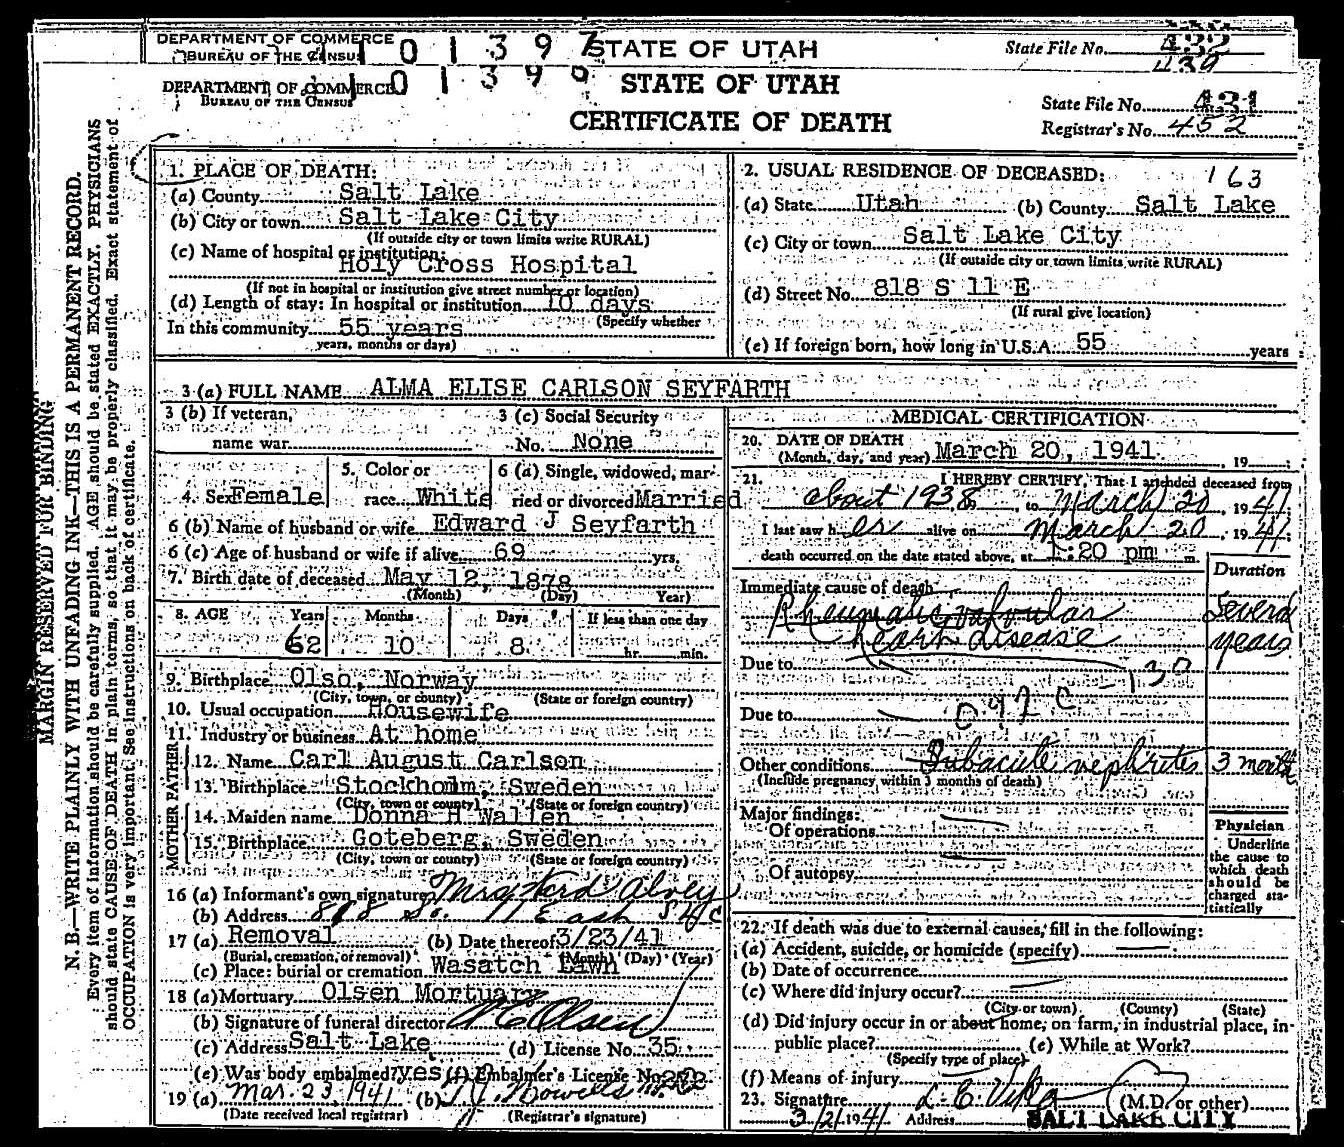 DEPARTMENT OF COMMERCE
BUREAU OF THE CENSUS
1 0 1 3 9 7
STATE OF UTAH
State File No. 432
439
DEPARTMENT OF COMMERCE
BUREAU OF THE CENSUS
1 0 1 3 9 9
STATE OF UTAH
CERTIFICATE OF DEATH
State File No. 431
Registrar's No. 452
MARGIN RESERVED FOR BINDING
N. B.—WRITE PLAINLY WITH UNFADING INK—THIS IS A PERMANENT RECORD.
Every item of information should be carefully supplied. AGE should be stated EXACTLY. PHYSICIANS
should state CAUSE OF DEATH in plain terms, so that it may be properly classified. Exact statement of
OCCUPATION is very important. See instructions on back of certificate.
1. PLACE OF DEATH:
(a) County Salt Lake
(b) City or town Salt Lake City
(If outside city or town limits write RURAL)
(c) Name of hospital or institution:
Holy Cross Hospital
(If not in hospital or institution give street number or location)
(d) Length of stay: In hospital or institution 10 days
(Specify whether
In this community 55 years
years, months or days)
2. USUAL RESIDENCE OF DECEASED: 163
(a) State Utah (b) County Salt Lake
(c) City or town Salt Lake City
(If outside city or town limits, write RURAL)
(d) Street No. 818 S 11 E
(If rural give location)
(e) If foreign born, how long in U.S.A. 55 years
3 (a) FULL NAME ALMA ELISE CARLSON SEYFARTH
3 (b) If veteran,
name war
3 (c) Social Security
No. None
4. Sex Female
5. Color or
race White
6 (a) Single, widowed, mar-
ried or divorced Married
6 (b) Name of husband or wife Edward J Seyfarth
6 (c) Age of husband or wife if alive 69 yrs.
7. Birth date of deceased May 12, 1878
(Month) (Day) (Year)
8. AGE Years Months Days If less than one day
62 10 8 hr. min.
9. Birthplace Olso, Norway
(City, town, or county) (State or foreign country)
10. Usual occupation Housewife
11. Industry or business At home
FATHER
12. Name Carl August Carlson
13. Birthplace Stockholm, Sweden
(City, town or county) (State or foreign country)
MOTHER
14. Maiden name Donna H Wallen
15. Birthplace Goteberg, Sweden
(City, town or county) (State or foreign country)
16 (a) Informant's own signature Mrs Ferd Alvey
(b) Address 818 So. 11 East SLC
17 (a) Removal (b) Date thereof 3/23/41
(Burial, cremation, or removal) (Month) (Day) (Year)
(c) Place: burial or cremation Wasatch Lawn
18 (a) Mortuary Olsen Mortuary
(b) Signature of funeral director Olsen
(c) Address Salt Lake (d) License No. 35
(e) Was body embalmed? yes (f) Embalmer's License No. 222
19 (a) Mar. 23 1941 (b)
(Date received local registrar) (Registrar's signature)
MEDICAL CERTIFICATION
20. DATE OF DEATH
(Month, day, and year) March 20, 1941, 19
21. I HEREBY CERTIFY, That I attended deceased from
about 1938, to March 20, 1941;
I last saw her alive on March 20, 1941;
death occurred on the date stated above, at 1:20 pm m.
Duration
Immediate cause of death
Rheumatic valvular
heart disease
Several
years
Due to 130
Due to 092 C
Other conditions Subacute nephritis 3 month
(Include pregnancy within 3 months of death)
Major findings:
Of operations
Of autopsy
Physician
Underline
the cause to
which death
should be
charged sta-
tistically
22. If death was due to external causes, fill in the following:
(a) Accident, suicide, or homicide (specify)
(b) Date of occurrence
(c) Where did injury occur?
(City or town) (County) (State)
(d) Did injury occur in or about home, on farm, in industrial place, in-
public place? (e) While at Work?
(Specify type of place)
(f) Means of injury
23. Signature L. E. Viko (M.D. or other)
3/21 1941 Address SALT LAKE CITY